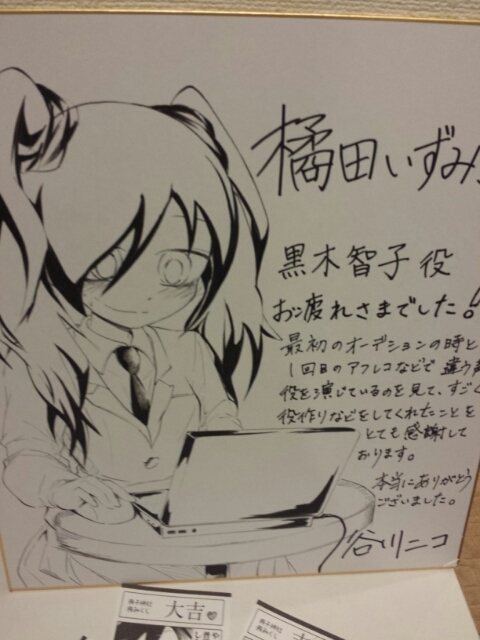 橘田いずみ
黒木智子役
お疲れさまでした!!
最初のオーデションの時と
1回目のアフレコなどで違う声
役を演じているのを見て、すごく
役作りなどをしてくれたことを
とても感謝して
おります。
本当にありがとう
ございました。
谷川ニコ
大吉